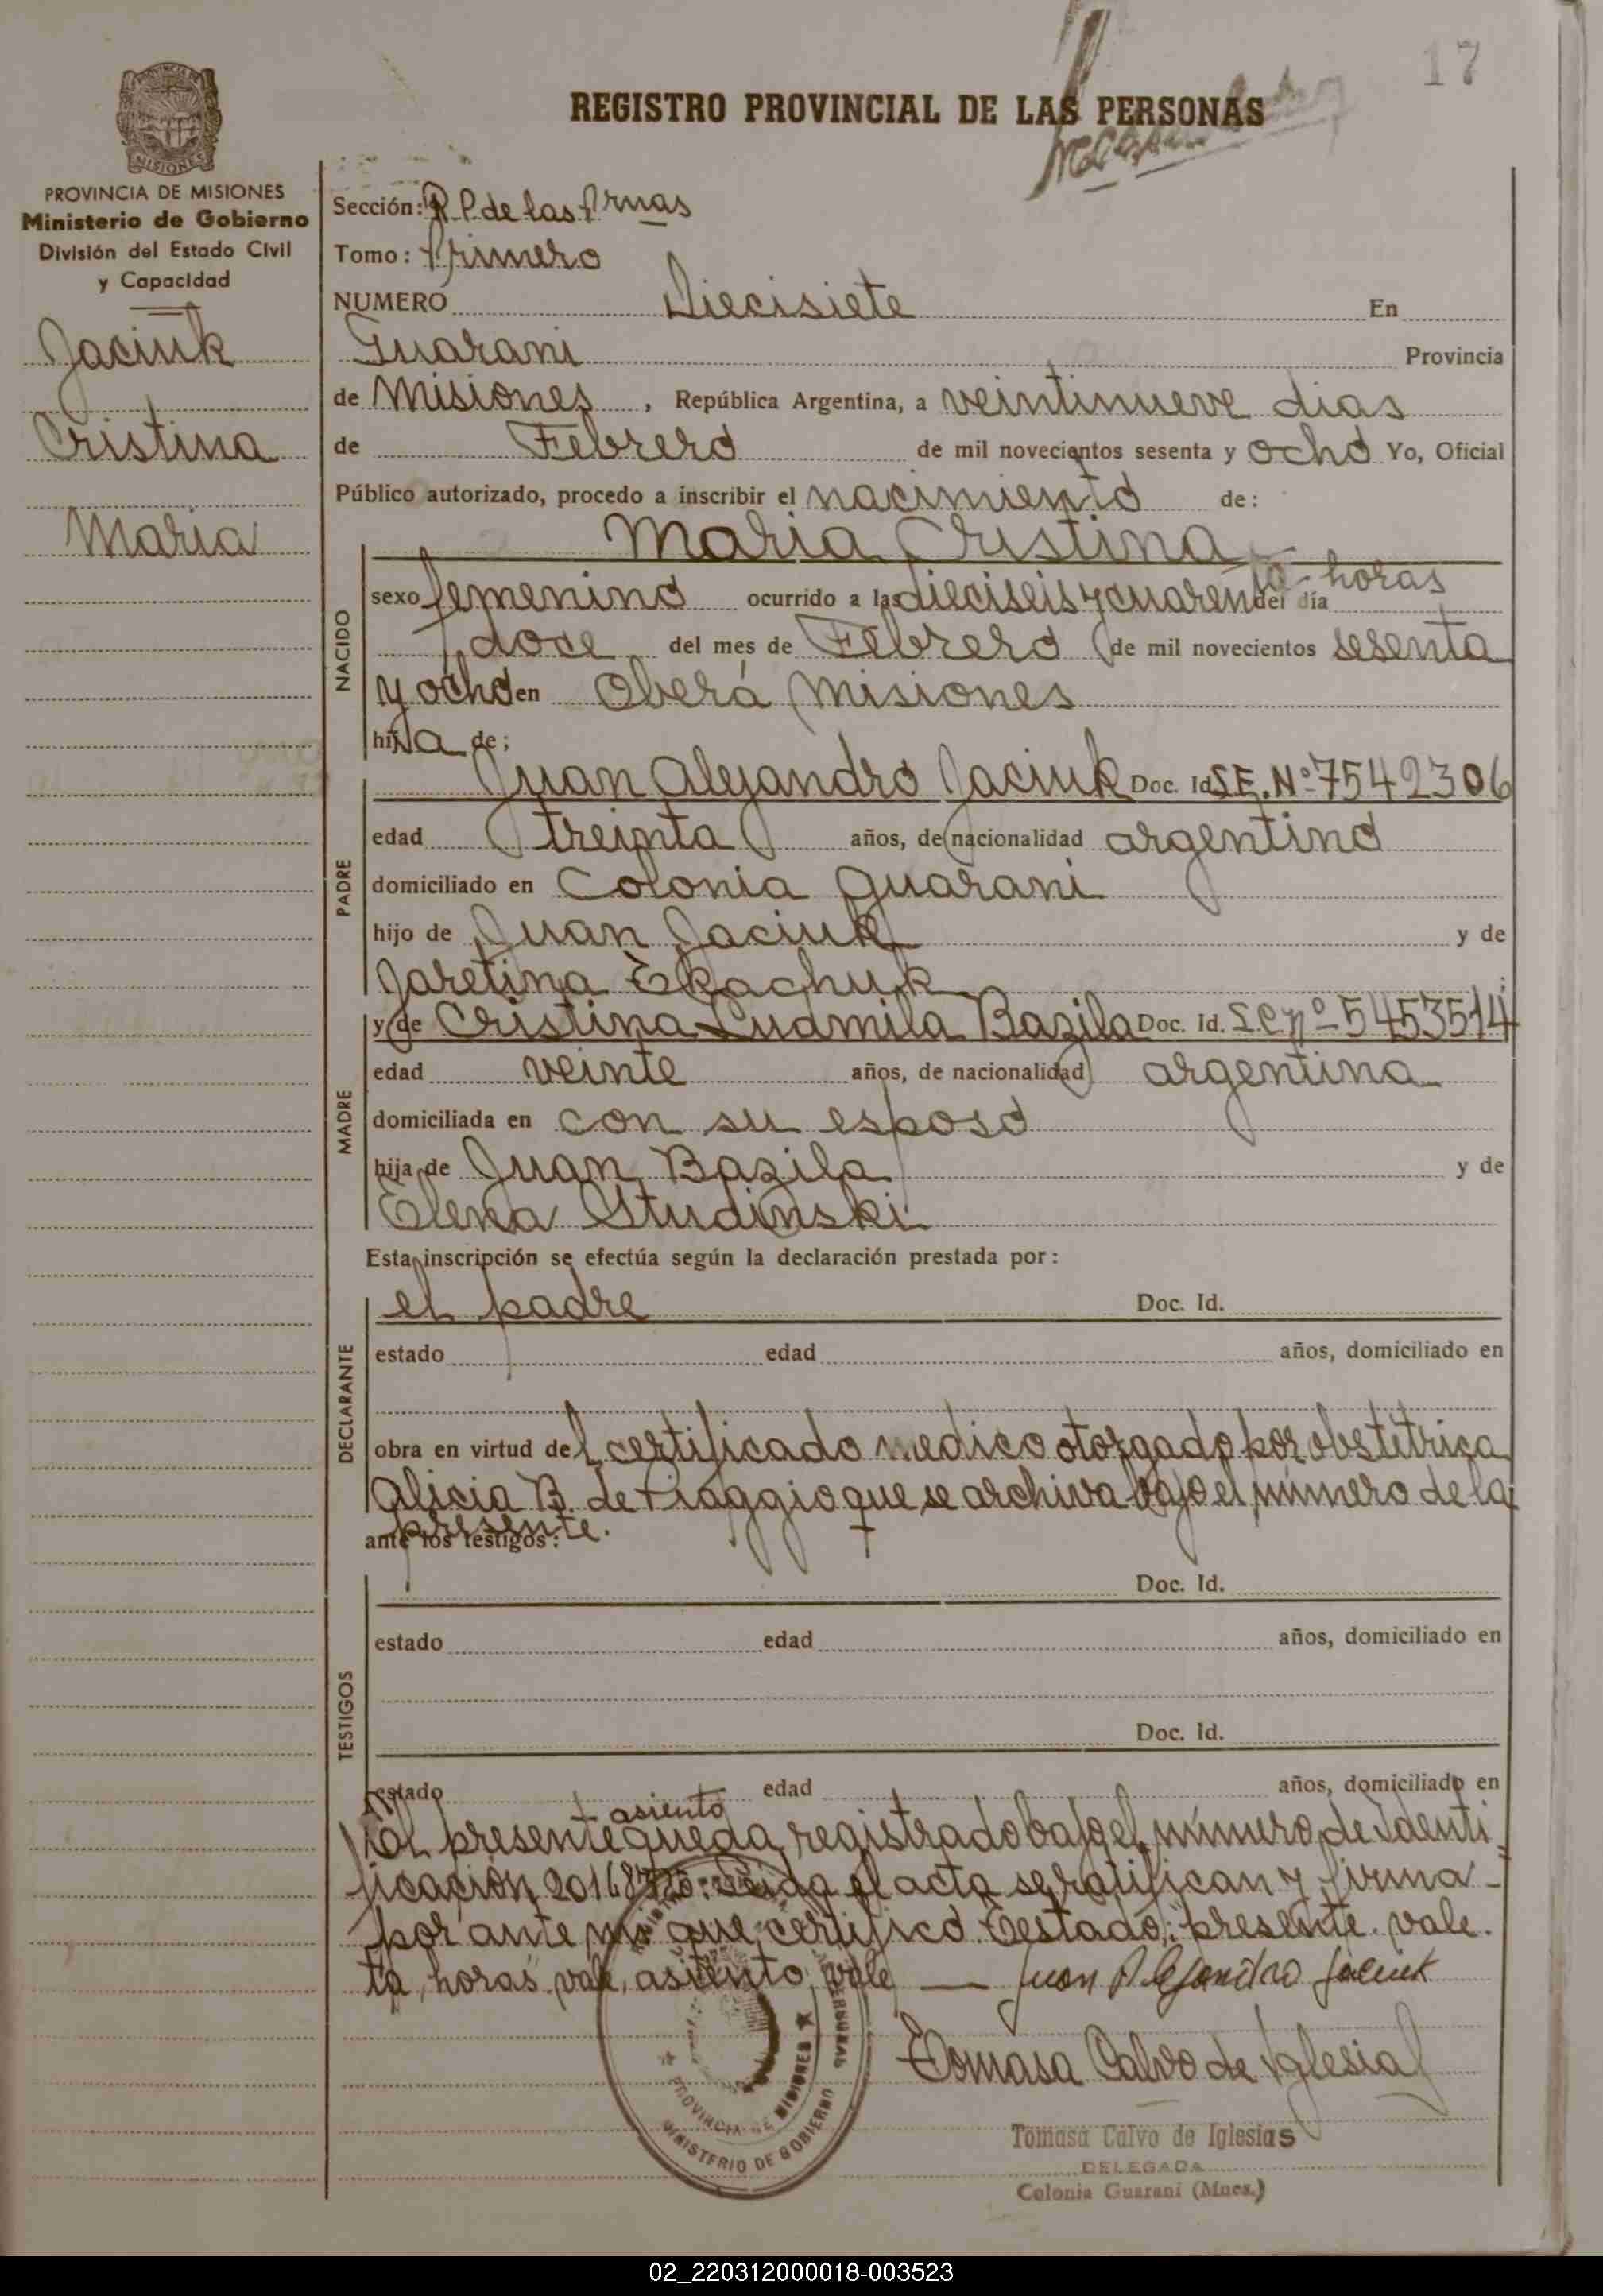 17
REGISTRO PROVINCIAL DE LAS PERSONAS
MISIONES
PROVINCIA DE MISIONES
Ministerio de Gobierno
División del Estado Civil
y Capacidad
Jaciuk
Cristina
Maria
Sección: R P. de las Prnas
Tomo: Primero
NUMERO Diecisiete En
Guarani Provincia
de Misiones, República Argentina, a veintinueve dias
de Febrero de mil novecientos sesenta y ocho Yo, Oficial
Público autorizado, procedo a inscribir el nacimiento de:
Maria Cristina
NACIDO
sexo femenino ocurrido a las dieciseis y cuarenta horas del día
doce del mes de Febrero de mil novecientos sesenta
y ocho en Oberá Misiones
hija de;
PADRE
Juan Alejandro Jaciuk Doc. Id S.E. Nº 7542306
edad treinta años, de nacionalidad argentino
domiciliado en Colonia Guarani
hijo de Juan Jaciuk y de
Jaretina Ekachuk;
MADRE
y de Cristina Ludmila Bazila Doc. Id. L.C nº 5453514
edad veinte años, de nacionalidad argentina
domiciliada en con su esposo
hija de Juan Bazila y de
Elena Studinski
Esta inscripción se efectúa según la declaración prestada por:
DECLARANTE
el padre Doc. Id.
estado edad años, domiciliado en
obra en virtud del certificado medico otorgado por obstetrica
Alicia B. de Piaggio que se archiva bajo el número de la
presente.
ante los testigos:
TESTIGOS
Doc. Id.
estado edad años, domiciliado en
Doc. Id.
estado edad años, domiciliado en
asiento
El presente queda registrado bajo el número de Identi
ficación Leida el acta se ratifican y firma
por ante mi que certifico. Testado: presente. vale.
ta, horas vale, asiento, vale — Juan Alejandro Jaciuk
Tomasa Calvo de Iglesias
PROVINCIA DE MISIONES
MINISTERIO DE GOBIERNO
Tomasa Calvo de Iglesias
DELEGADA
Colonia Guaraní (Mnes.)
02_220312000018-003523